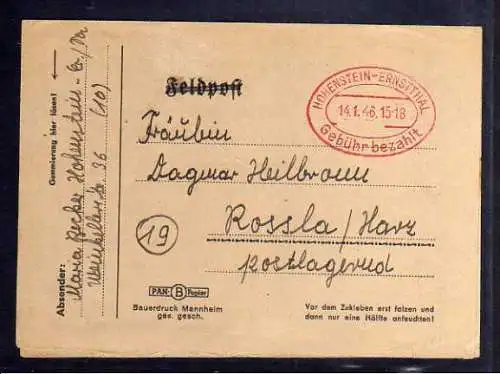 Feldpost
HOHENSTEIN-ERNSTTHAL
14.1.46.15-18
Gebühr bezahlt
Fräulein
Dagmar Heilbronn
19
Rossla/Harz
postlagernd
PAN- B Papier
Bauerdruck Mannheim
ges. gesch.
Vor dem Zukleben erst falzen und
dann nur eine Hälfte anfeuchten!
Gummierung hier lösen!
Absender: Maria Hohenstein-E/Sa
36 (10)